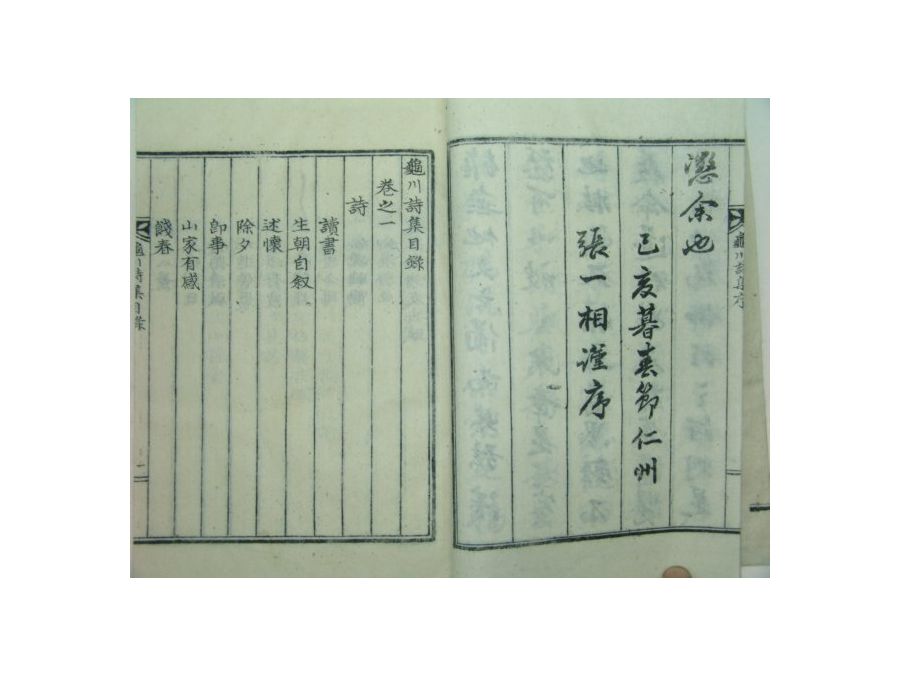 龜川詩集序
余也
己亥暮春節仁州
張一相謹序
龜川詩集目錄
卷之一
詩
讀書
生朝自叙
述懷
除夕
卽事
山家有感
餞春
龜川詩集目錄
一